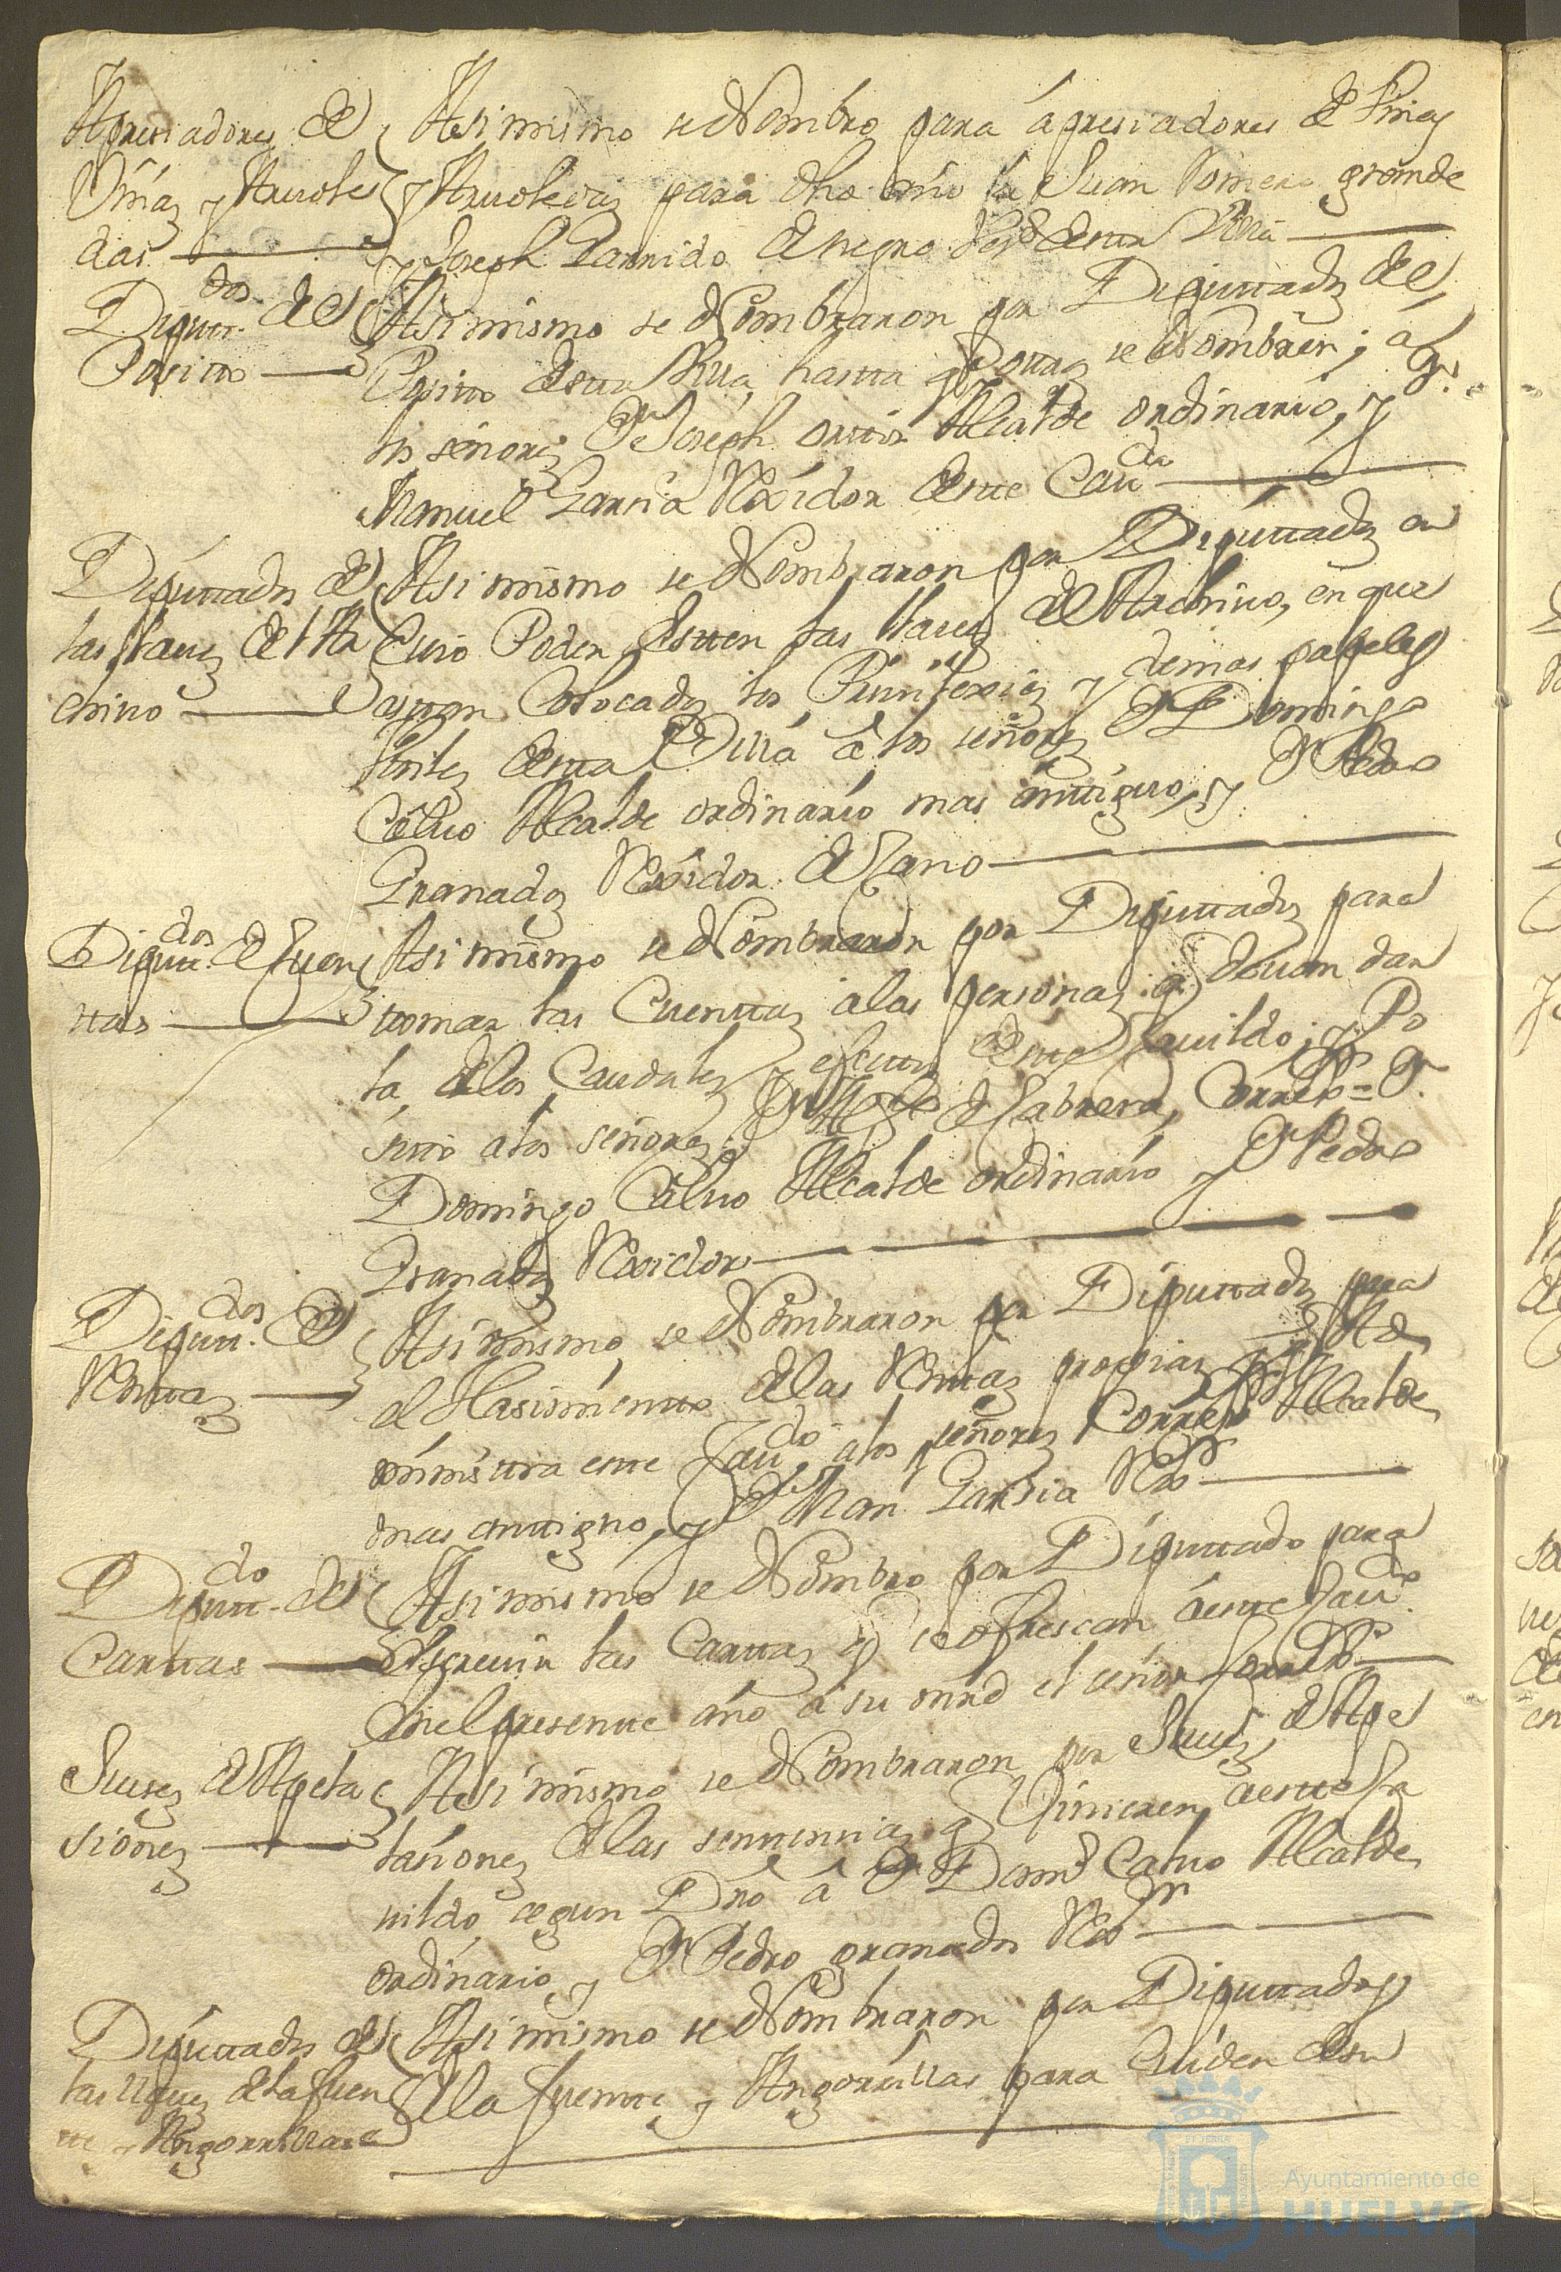 Apresiadores de
Viñas y Arvole
das
Asi mismo se Nombro para apresiadores de Viñas
y Arvoledas para dho año a Juan Romero grande
y Joseph Garrido de negro vesº desta Villa
Diputt.dos del
Posito
Asi mismo se Nombraron por Diputtados del
Posito desta Villa, hasta q otros se Nombren; a
los señores Dn Joseph Ortiz Alcalde ordinario, y Dn
Manuel Garsia Rexidor deste Cavdo
Diputtados de
las llaves del Ar
chivo
Asi mismo se Nombraron por Diputtados en
Cuio Poder Esten las llaves del Archivo, en que
estan Colocados los Privilexios y demas papeles
utiles desta Villa a los señores Dn Domingo
Calvo Alcalde ordinario mas anttiguo, y Dn Pedro
Granados Rexidor Decano
Diputt.dos de Quen
ttas
Asi mismo se Nombraron por Diputtados para
ttomar las Cuenttas a las personas q devan dar
la, de los Caudales y efectos deste Cavildo; y Po
sito a los señores Dn de Cabrera, Correxor = Dn
Domingo Calvo Alcalde ordinario y Dn Pedro
Granados Rexidor
Diputt.dos de
Renttas
Asi mismo se Nombraron por Diputtados para
el Hasimientto de las Renttas propias q Ad
ministra este Cavdo a los señores Correxor Alcalde
mas anttiguo, y Dn Man Garsia Rexor
Diputt.do de
Carttas
Asi mismo se Nombro por Diputtado para
Escrevir las Carttas q se ofrescan a este Cavdo
en el presente año a su mrd el señor Correxor
Jueses de Apela
siones
Asi mismo se Nombraron por Jueses de Ape
lasiones de las senttensias q Vinieren a este Ca
vildo segun Dro a Dn Domº Calvo Alcalde
ordinario y Dn Pedro granados Rexor
Diputtados de
las llaves de la fuen
te y Angorrillas
Asi mismo se Nombraron por Diputtados
de la fuente y Angorrillas para Cuiden de su
Ayuntamiento de
HUELVA